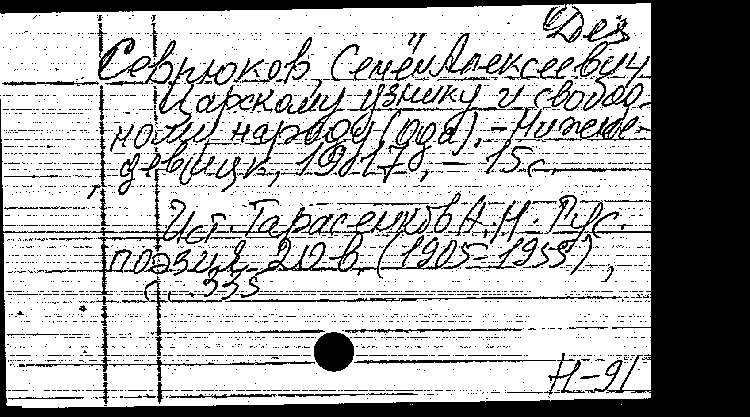 Дез
Севрюков, Семён Алексеевич
Царскому узнику и свобод-
ному народу (ода). – Нижне-
девицк, 1917, – 15с.
Ист. Тарасенков А. Н. Рус.
поэзия 20 в. (1905–1955),
с. 335
Н-91